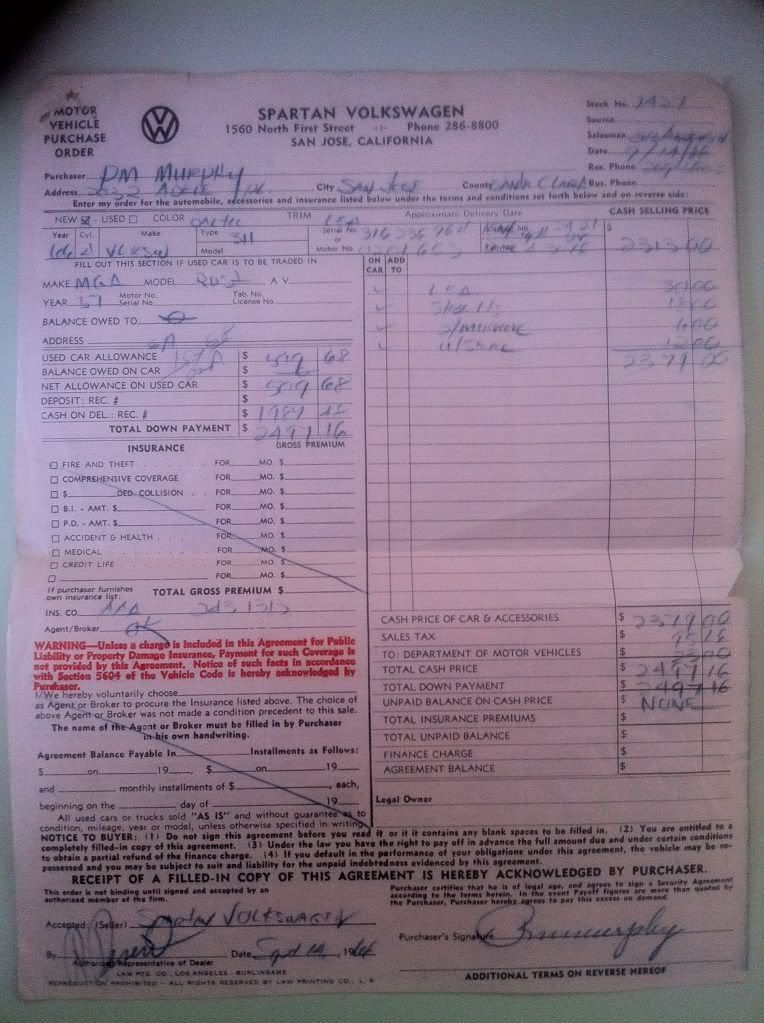 MOTOR VEHICLE PURCHASE ORDER
SPARTAN VOLKSWAGEN
1560 North First Street -:- Phone 286-8800
SAN JOSE, CALIFORNIA
Stock No. 1427
Source
Salesman
Date
Res. Phone
Purchaser PM Murphy
Address City SAN JOSE County SANTA CLARA Bus. Phone
Enter my order for the automobile, accessories and insurance listed below under the terms and conditions set forth below and on reverse side:
NEW USED COLOR TRIM LEA Approximate Delivery Date CASH SELLING PRICE
Year Cyl. Make Type 311 Serial No. or Motor No.
Model $ 2315 00
FILL OUT THIS SECTION IF USED CAR IS TO BE TRADED IN
ON CAR ADD TO
MAKE MGA MODEL A V
LEA 30 00
YEAR 57 Motor No. Serial No. Tab. No. License No.
BALANCE OWED TO
ADDRESS
USED CAR ALLOWANCE $ 509 68
2379 00
BALANCE OWED ON CAR $
NET ALLOWANCE ON USED CAR $ 509 68
DEPOSIT: REC. # $
CASH ON DEL.: REC. # $
TOTAL DOWN PAYMENT $ 2497 16
INSURANCE GROSS PREMIUM
FIRE AND THEFT FOR MO. $
COMPREHENSIVE COVERAGE FOR MO. $
$ DED. COLLISION FOR MO. $
B.I. - AMT. $ FOR MO. $
P.D. - AMT. $ FOR MO. $
ACCIDENT & HEALTH FOR MO. $
MEDICAL FOR MO. $
CREDIT LIFE FOR MO. $
FOR MO. $
If purchaser furnishes own insurance list: TOTAL GROSS PREMIUM $
INS. CO. AAA
Agent/Broker
WARNING—Unless a charge is included in this Agreement for Public
Liability or Property Damage Insurance, Payment for such Coverage is
not provided by this Agreement. Notice of such facts in accordance
with Section 5604 of the Vehicle Code is hereby acknowledged by
Purchaser.
I/We hereby voluntarily choose
as Agent or Broker to procure the Insurance listed above. The choice of
above Agent or Broker was not made a condition precedent to this sale.
The name of the Agent or Broker must be filled in by Purchaser
in his own handwriting.
Agreement Balance Payable In Installments as Follows:
$ on 19 , $ on 19
and monthly installments of $ each,
beginning on the day of 19
CASH PRICE OF CAR & ACCESSORIES $ 2379 00
SALES TAX $ 95 16
TO: DEPARTMENT OF MOTOR VEHICLES $ 23 00
TOTAL CASH PRICE $ 2497 16
TOTAL DOWN PAYMENT $ 2497 16
UNPAID BALANCE ON CASH PRICE $ NONE
TOTAL INSURANCE PREMIUMS $
TOTAL UNPAID BALANCE $
FINANCE CHARGE $
AGREEMENT BALANCE $
Legal Owner
All used cars or trucks sold "AS IS" and without guarantee as to
condition, mileage, year or model, unless otherwise specified in writing
NOTICE TO BUYER: (1) Do not sign this agreement before you read it or it it contains any blank spaces to be filled in. (2) You are entitled to a
completely filled-in copy of this agreement. (3) Under the law you have the right to pay off in advance the full amount due and under certain conditions
to obtain a partial refund of the finance charge. (4) If you default in the performance of your obligations under this agreement, the vehicle may be re-
possessed and you may be subject to suit and liability for the unpaid indebtedness evidenced by this agreement.
RECEIPT OF A FILLED-IN COPY OF THIS AGREEMENT IS HEREBY ACKNOWLEDGED BY PURCHASER.
This order is not binding until signed and accepted by an
authorized member of the firm.
Purchaser certifies that he is of legal age, and agrees to sign a Security Agreement
according to the terms herein. In the event Payoff figures are more than quoted by
the Purchaser, Purchaser hereby agrees to pay this excess on demand.
Accepted (Seller) Spartan VOLKSWAGEN
Purchaser's Signature PMMurphy
By Date Sept 14, 1966
Authorized Representative of Dealer
LAW PTG. CO., LOS ANGELES - BURLINGAME
REPRODUCTION PROHIBITED - ALL RIGHTS RESERVED BY LAW PRINTING CO., L. A.
ADDITIONAL TERMS ON REVERSE HEREOF